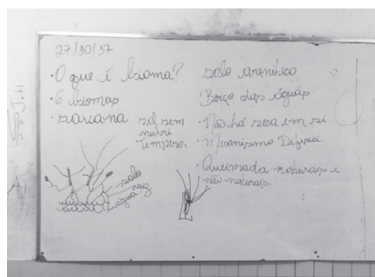 27/10/17
• O que é bioma?
• 6 biomas
• savana
solo
raiz
água
solo arenítico
• Berço das águas
• Não há seca em si
• Mecanismo Defesa
• Queimada naturais e
não naturais.